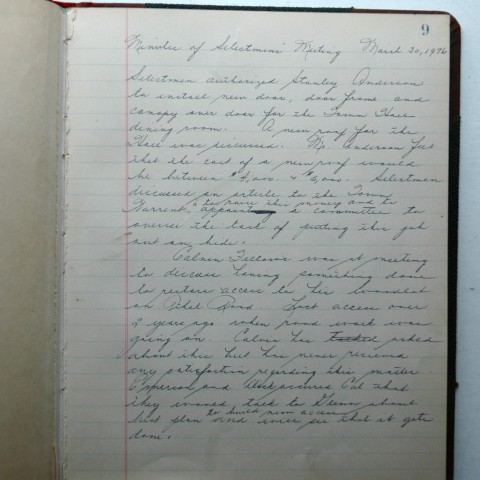 9
Minutes of Selectmen's Meeting March 30, 1976
Selectmen authorized Stanley Anderson
to install new door, door frame and
canopy over door for the Town Hall
dining room. A new roof for the
Hall was discussed. Mr. Anderson felt
that the cost of a new roof would
be between $ & $ Selectmen
discussed an article to the Town
to raise this money and to
Warrant, appointing a committee to
oversee the task of putting this job
out on bids.
Calvin was at meeting
to discuss having something done
to restore access to his woodlot
on Road. Lost access over
2 years ago when road work was
going on. Calvin has asked
about this but has never received
any satisfaction regarding this matter.
Emerson and assured Cal that
they would talk to Glenn about
to build new access
best plan and will see that it gets
done.